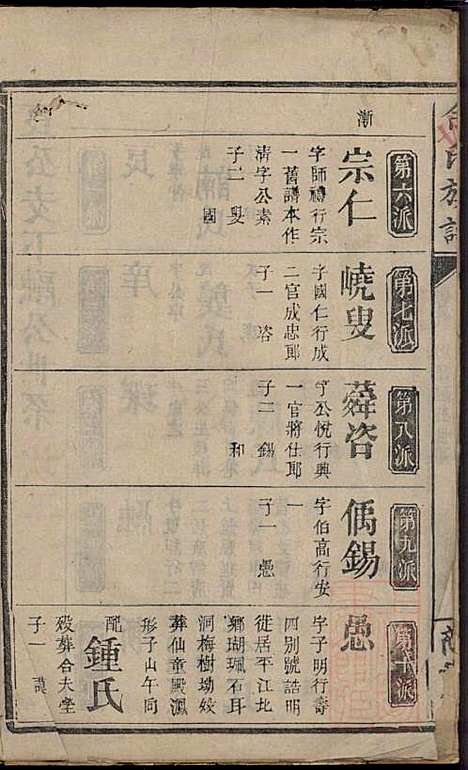 第六派
漸
宗仁
字師禮行宗
一舊譜本作
清字公素
子二 叟
國
第七派
嶢叟
字國仁行成
二官成忠郎
子一 咨
第八派
蕣咨
字公悅行興
一官將仕郎
子二 錫
和
第九派
偊錫
字伯高行安
一
子一 愚
第十派
愚
字子明行壽
四別號誥明
徙居平江北
鄉瑚珮石耳
洞梅樹坳
葬仙童殿
形子山午同
配
鍾氏
歿葬合夫塋
子一